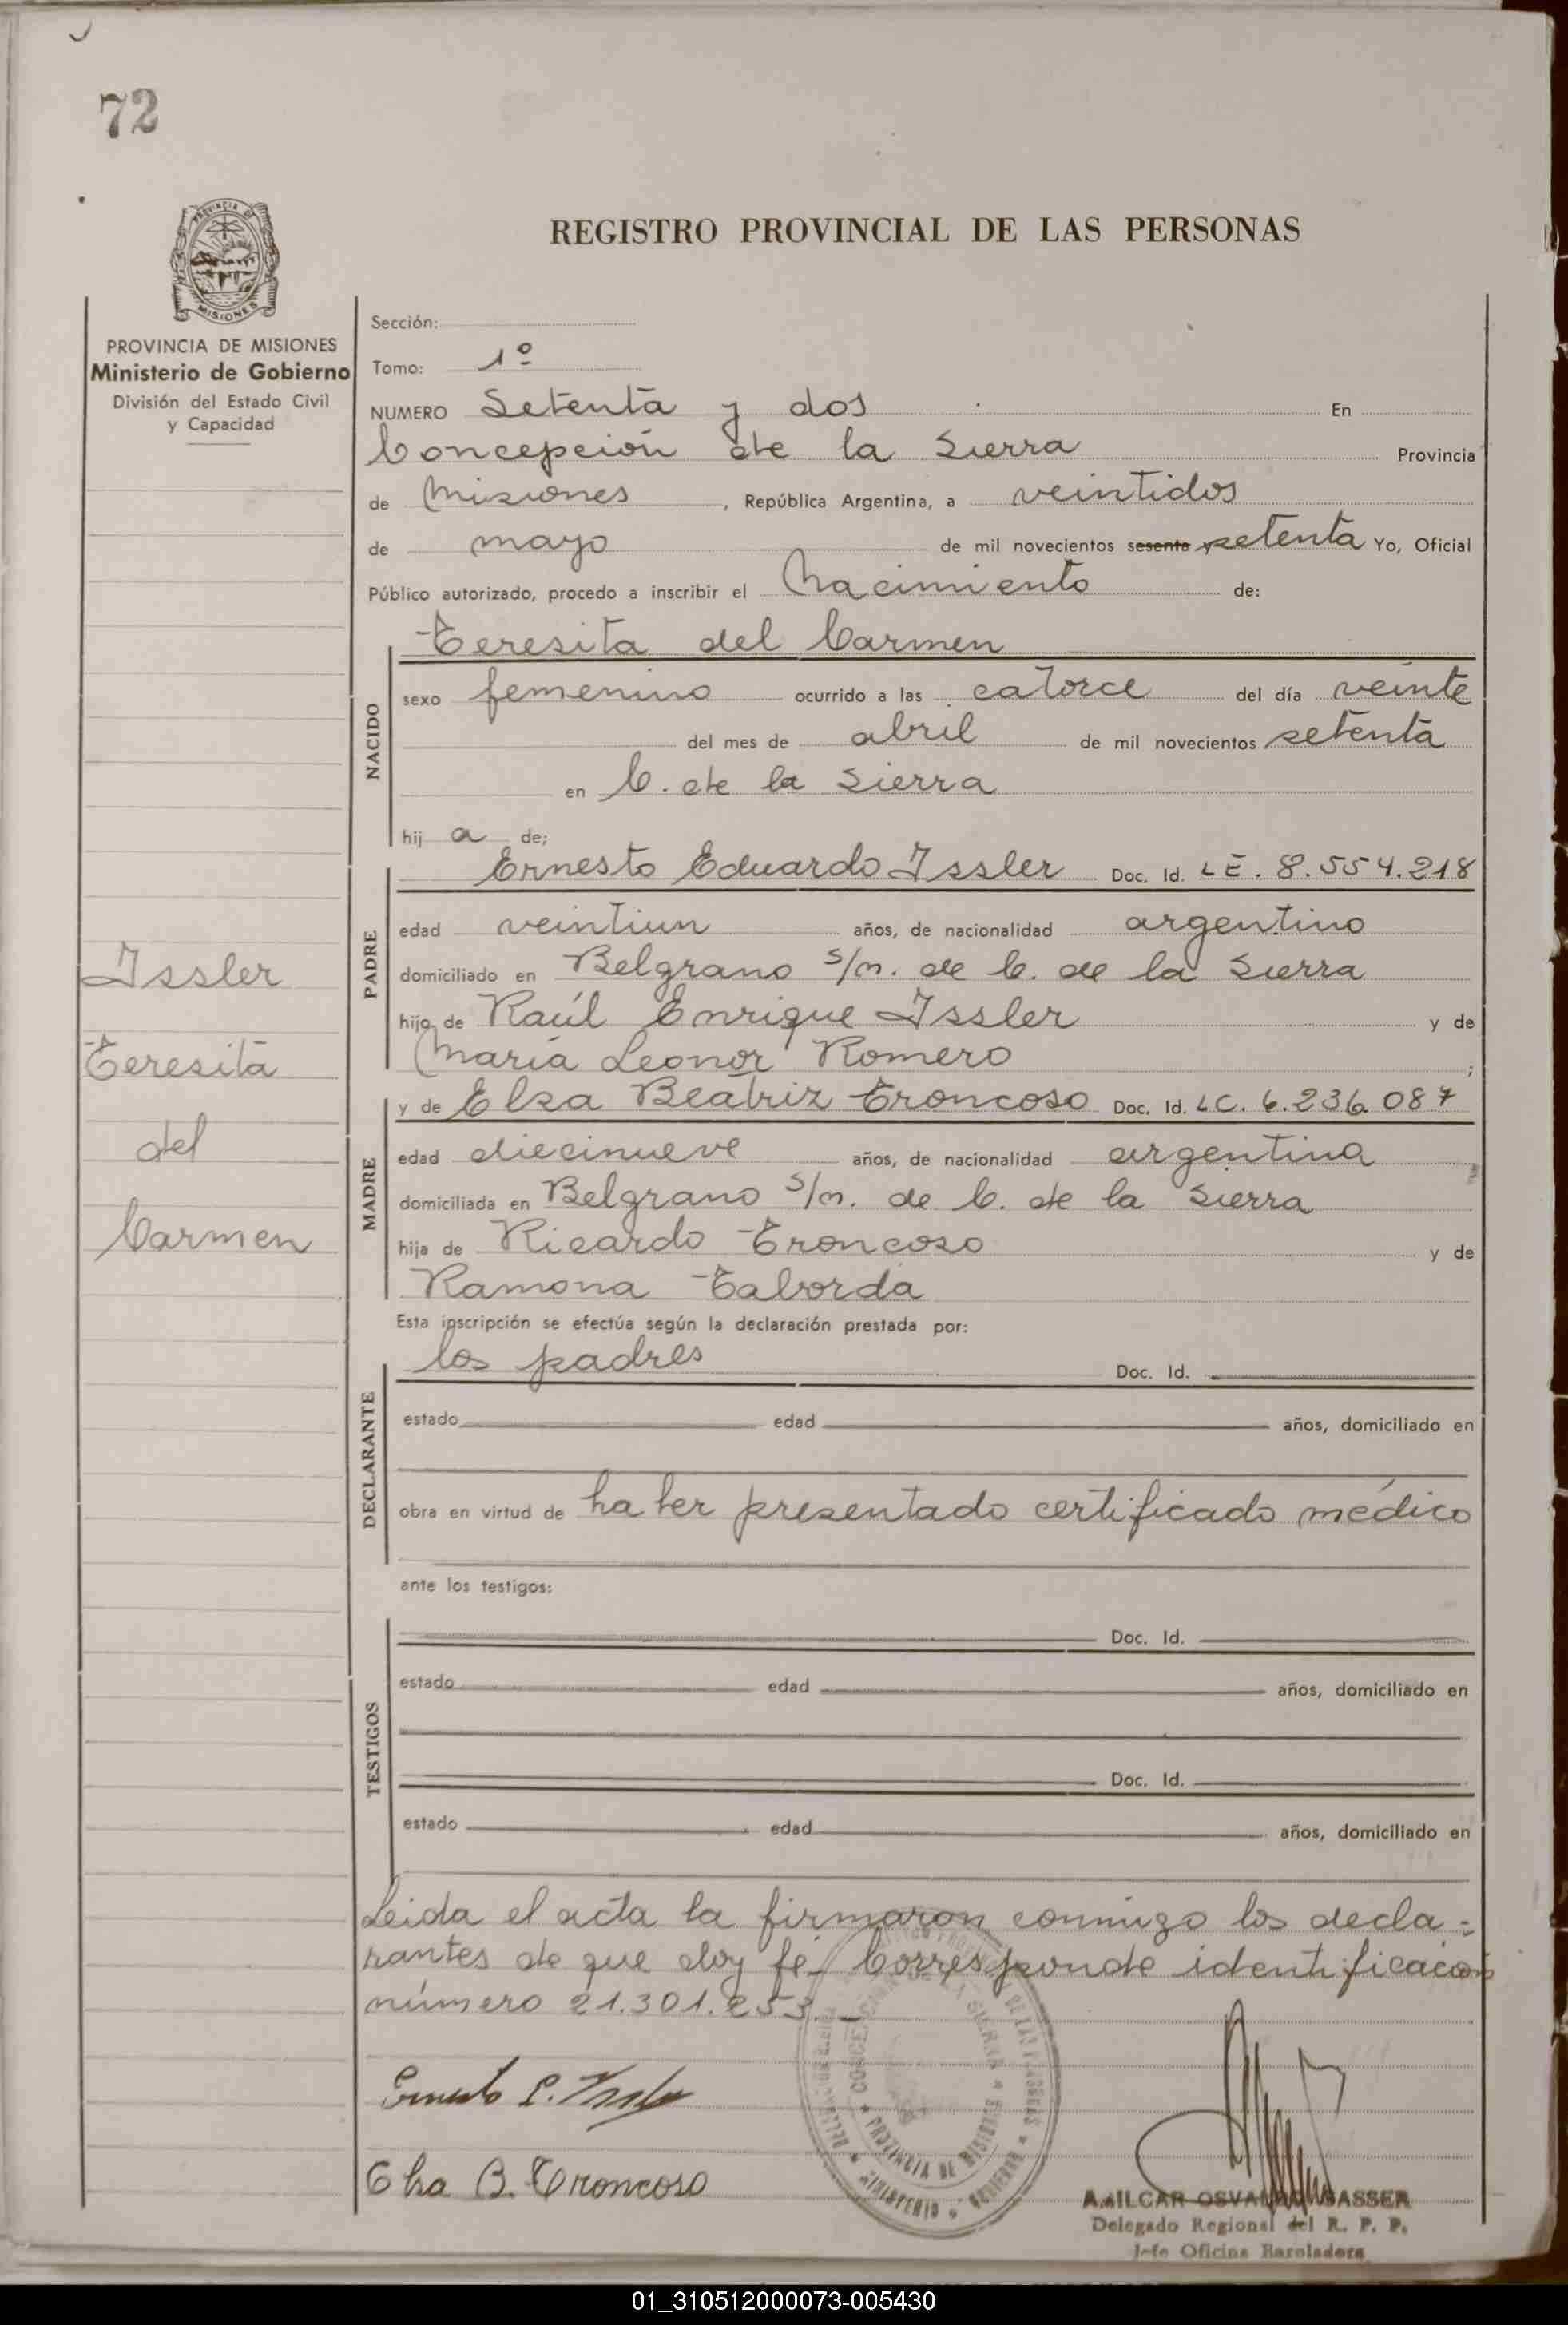 72
PROVINCIA DE MISIONES
Ministerio de Gobierno
División del Estado Civil
y Capacidad
REGISTRO PROVINCIAL DE LAS PERSONAS
Sección:
Tomo: 1º
NUMERO Setenta y dos En
Concepción de la Sierra Provincia
de Misiones, República Argentina, a veintidos
de mayo de mil novecientos sesenta y setenta Yo, Oficial
Público autorizado, procedo a inscribir el Nacimiento de:
Teresita del Carmen
NACIDO
sexo femenino ocurrido a las catorce del día veinte
del mes de abril de mil novecientos setenta
en C. de la Sierra
hij a de;
PADRE
Ernesto Eduardo Issler Doc. Id. LE. 8.554.218
edad veintiun años, de nacionalidad argentino
domiciliado en Belgrano s/n. de C. de la Sierra
hijo de Raúl Enrique Issler y de
María Leonor Romero ;
MADRE
y de Elsa Beatriz Troncoso Doc. Id. LC. 6.236.087
edad diecinueve años, de nacionalidad argentina
domiciliada en Belgrano s/n. de C. de la Sierra
hija de Ricardo Troncoso y de
Ramona Taborda
Issler
Teresita
del
Carmen
Esta inscripción se efectúa según la declaración prestada por:
DECLARANTE
los padres Doc. Id.
estado edad años, domiciliado en
obra en virtud de haber presentado certificado médico
ante los testigos:
TESTIGOS
Doc. Id.
estado edad años, domiciliado en
Doc. Id.
estado edad años, domiciliado en
Leida el acta la firmaron conmigo los decla-
rantes de que doy fé- Corresponde identificación
número 21.301.253.-
Ernesto E. Issler
Elsa B. Troncoso
CONCEPCION DE LA SIERRA
PROVINCIA DE MISIONES
MINISTERIO DE GOBIERNO
AMILCAR OSVALDO SASSER
Delegado Regional del R. P. P.
Jefe Oficina
01_310512000073-005430